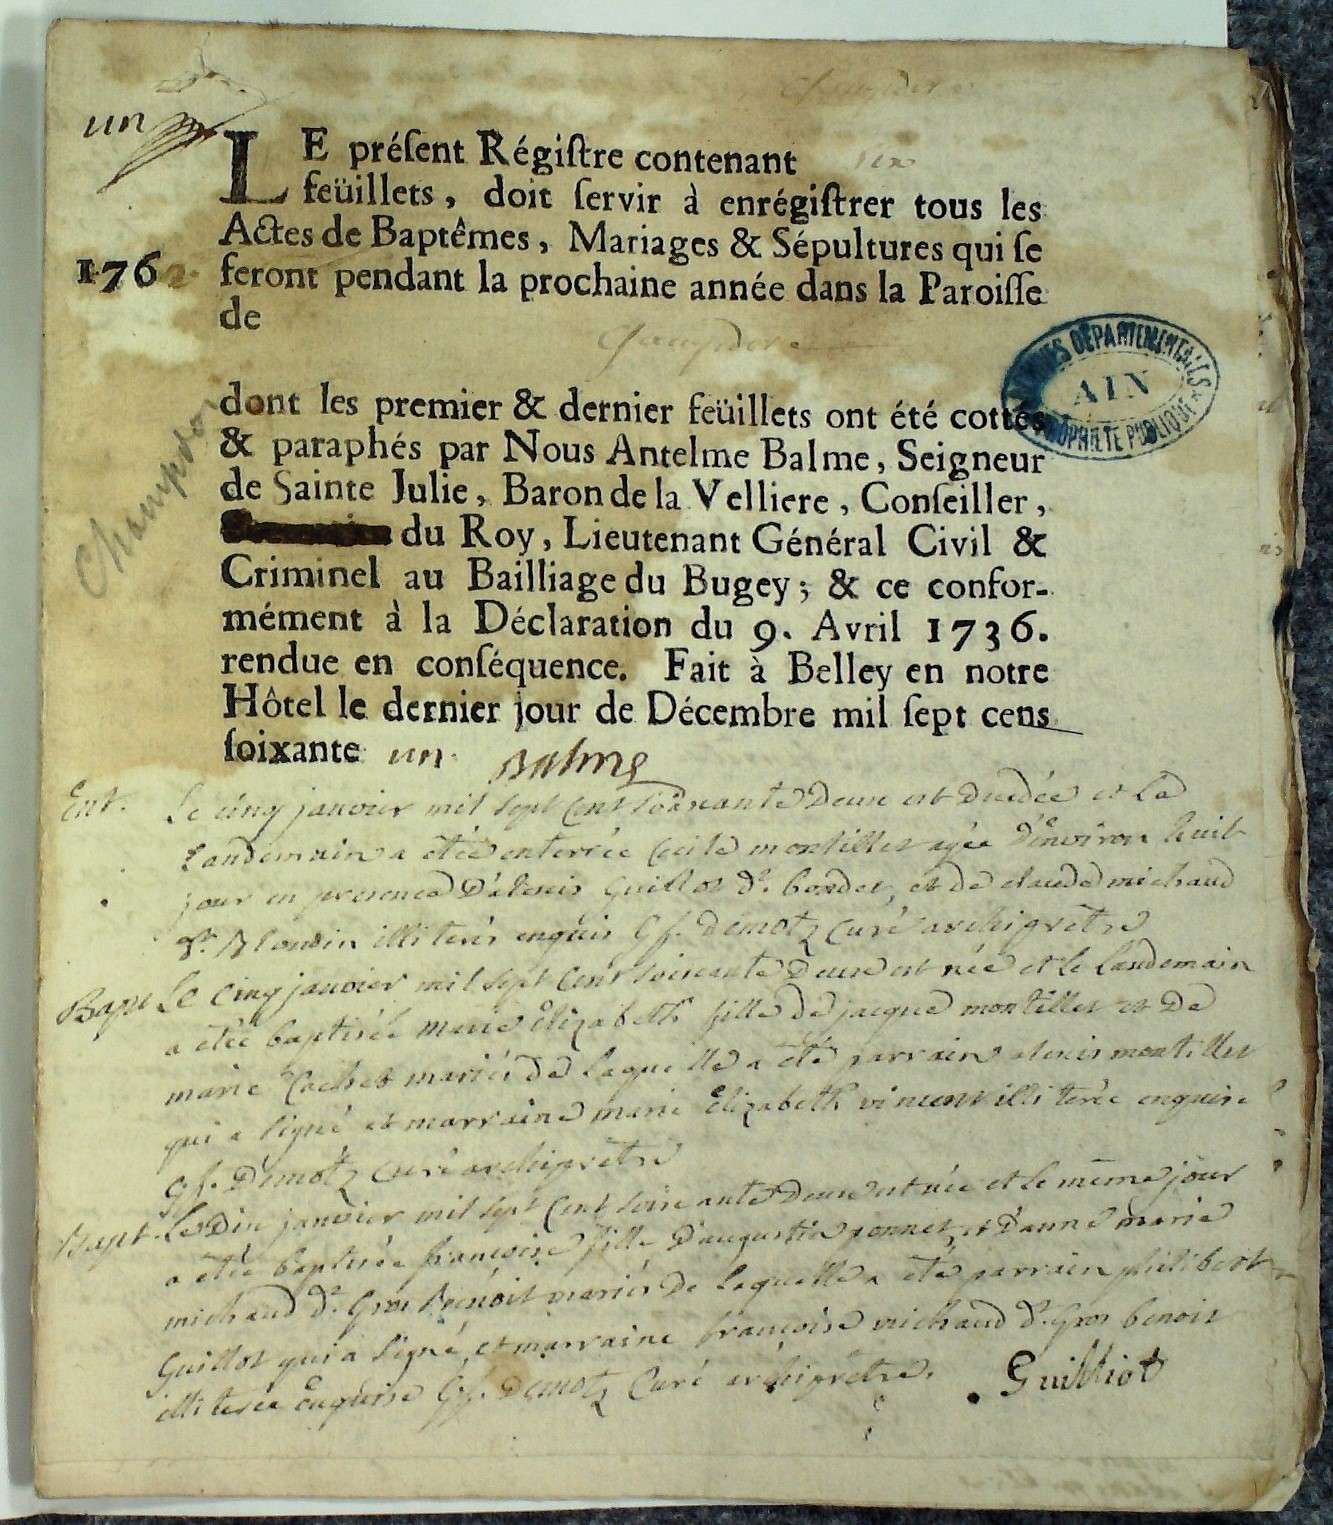 un
LE préſent Régiſtre contenant
feüillets, doit ſervir à enrégiſtrer tous les
Actes de Baptêmes, Mariages & Sépultures qui ſe
1762 feront pendant la prochaine année dans la Paroiſſe
de
ARCHIVES DÉPARTEMENTALES
AIN
PROPRIÉTÉ PUBLIQUE
dont les premier & dernier feüillets ont été cottés
& paraphés par Nous Antelme Balme, Seigneur
de Sainte Julie, Baron de la Velliere, Conſeiller,
du Roy, Lieutenant Général Civil &
Criminel au Bailliage du Bugey; & ce confor-
mément à la Déclaration du 9. Avril 1736.
rendue en conſéquence. Fait à Belley en notre
Hôtel le dernier jour de Décembre mil ſept cens
ſoixante un Balme
Champdor
Ent. Le cinq janvier mil sept cent soixante Deux est Decedée et Le
Landemain a etée enterrée Cecile montillet agée D'environ huit
jour en presence D'alexis Guillot dt. bordet, et de claude michaud
dt. Blondin illiterés enquis Gf. Demotz curé archiprêtre
Bapt Le Cinq janvier mil sept Cent soixante Deux est née et le Landemain
a etée baptisée marie Elizabeth fille de jacque montillet et De
marie Cochet mariés De laquelle a été parrain alexis montillet
qui a signé et marraine marie Elizabeth vincent illiterée enquise
Gf. Demotz curé archiprêtre
Bapt. Le Dix janvier mil sept Cent soixante Deux est née et le même jour
a etée baptisée françoise fille D'augustin ponnet, et D'anne marie
michaud dt. Gros benoit mariés De laquelle a été parrain philibert
Guillot qui a signé, et marraine françoise michaud dt. Gros benoit
illiterée Enquise Gf. Demotz Curé archiprêtre.
Guilliot